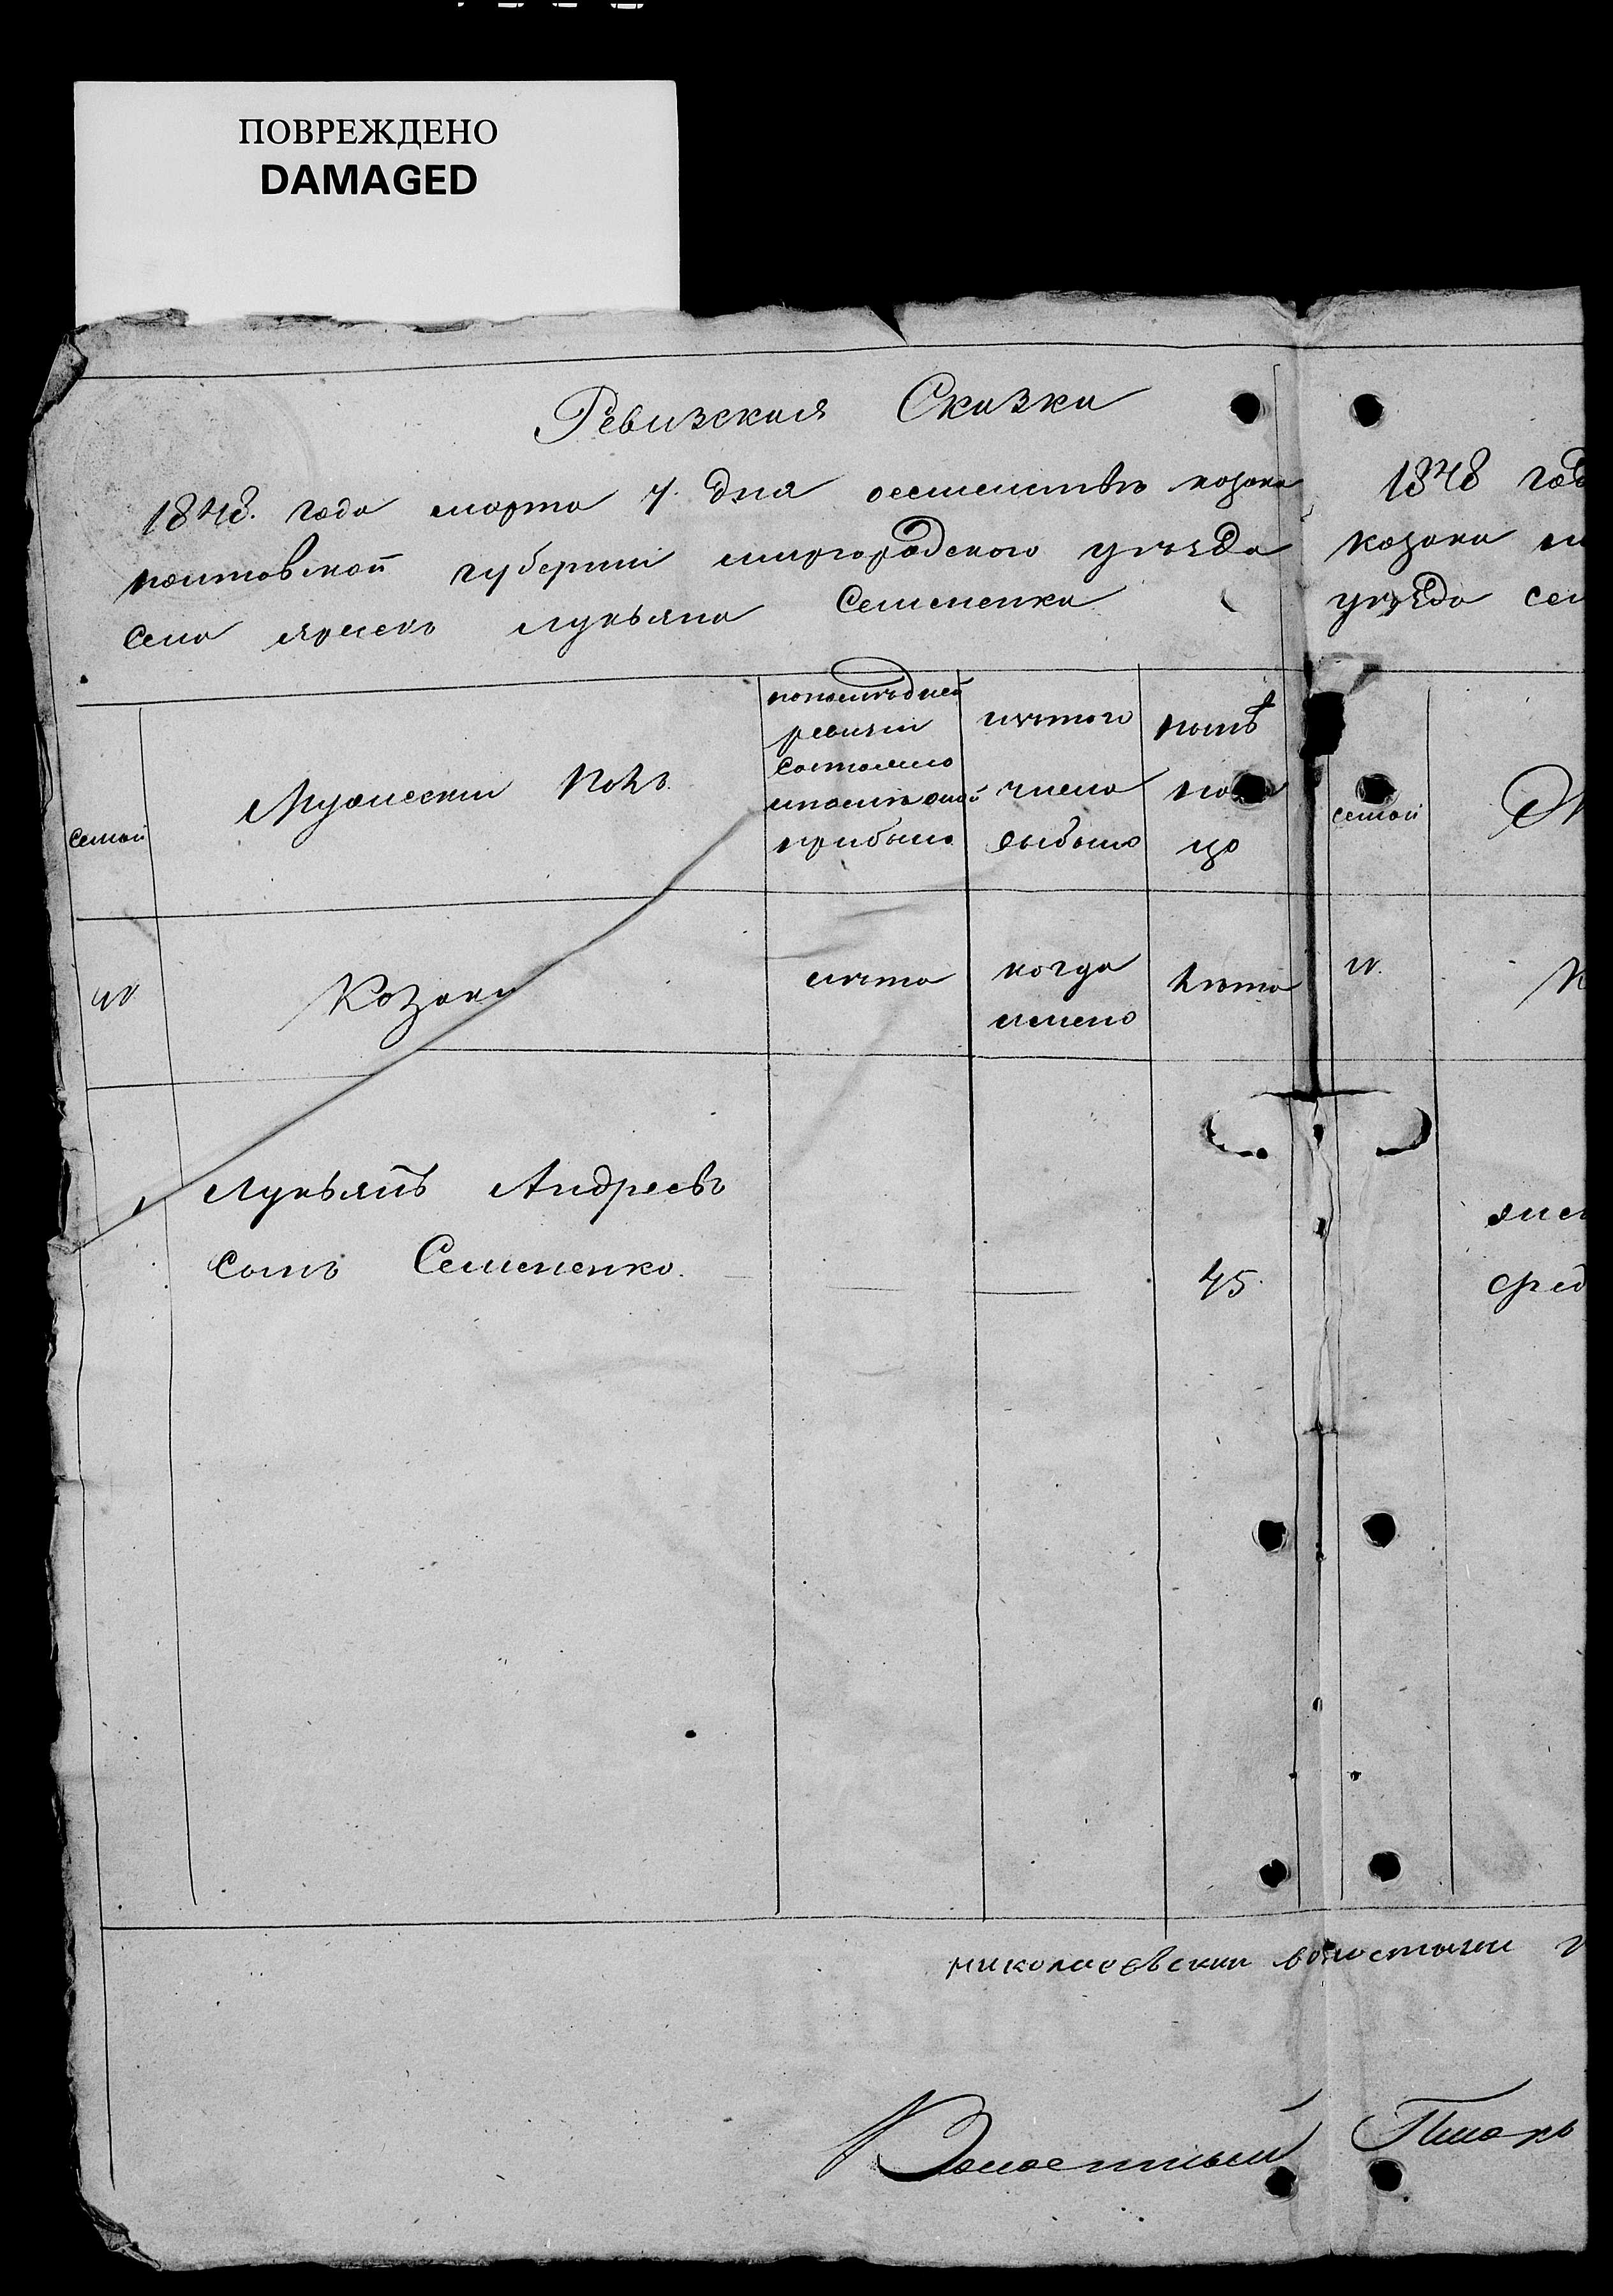 ПОВРЕЖДЕНО
DAMAGED
Ревизская Сказка
1848. года марта 7. дня осемействъ козака
полтовской губернии миргородского уъзда
села Лукьяна Семененка
1848 год
козака ми
уъзда сел
семьй
Мужескии Полъ
попослъдней
ревизии
состояло
ипослъ оной
прибыло
изтого
числа
выбыло
нынъ
на
цо
семьй
М
№
Козаки
лъта
когда
имено
лъта
№.
К
1
Лукьянъ Андреевъ
сынъ Семененко.
45.
николаевскии волостьныи г
Волостныи Писарь